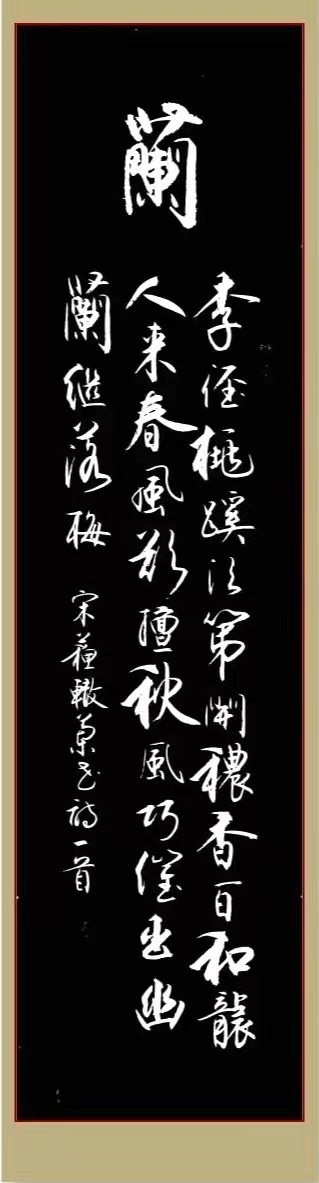 蘭
李徑桃蹊次第開穠香百和襲
人来春風欲擅秋風巧催出幽
蘭继落梅
宋蘇轍蘭花詩一首